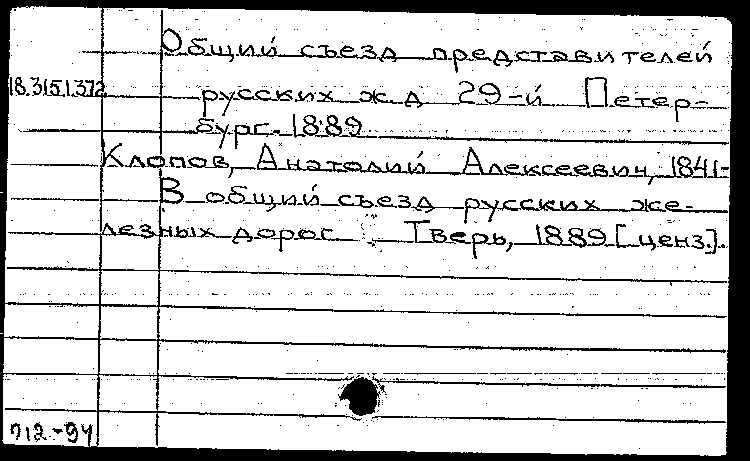 Общий съезд представителей
18.315.1.372 русских ж д 29-й Петер-
бург. 1889
Клопов, Анатолий Алексеевич, 1841-
В общий съезд русских же-
лезных дорог Тверь, 1889 [ценз.].
712-94